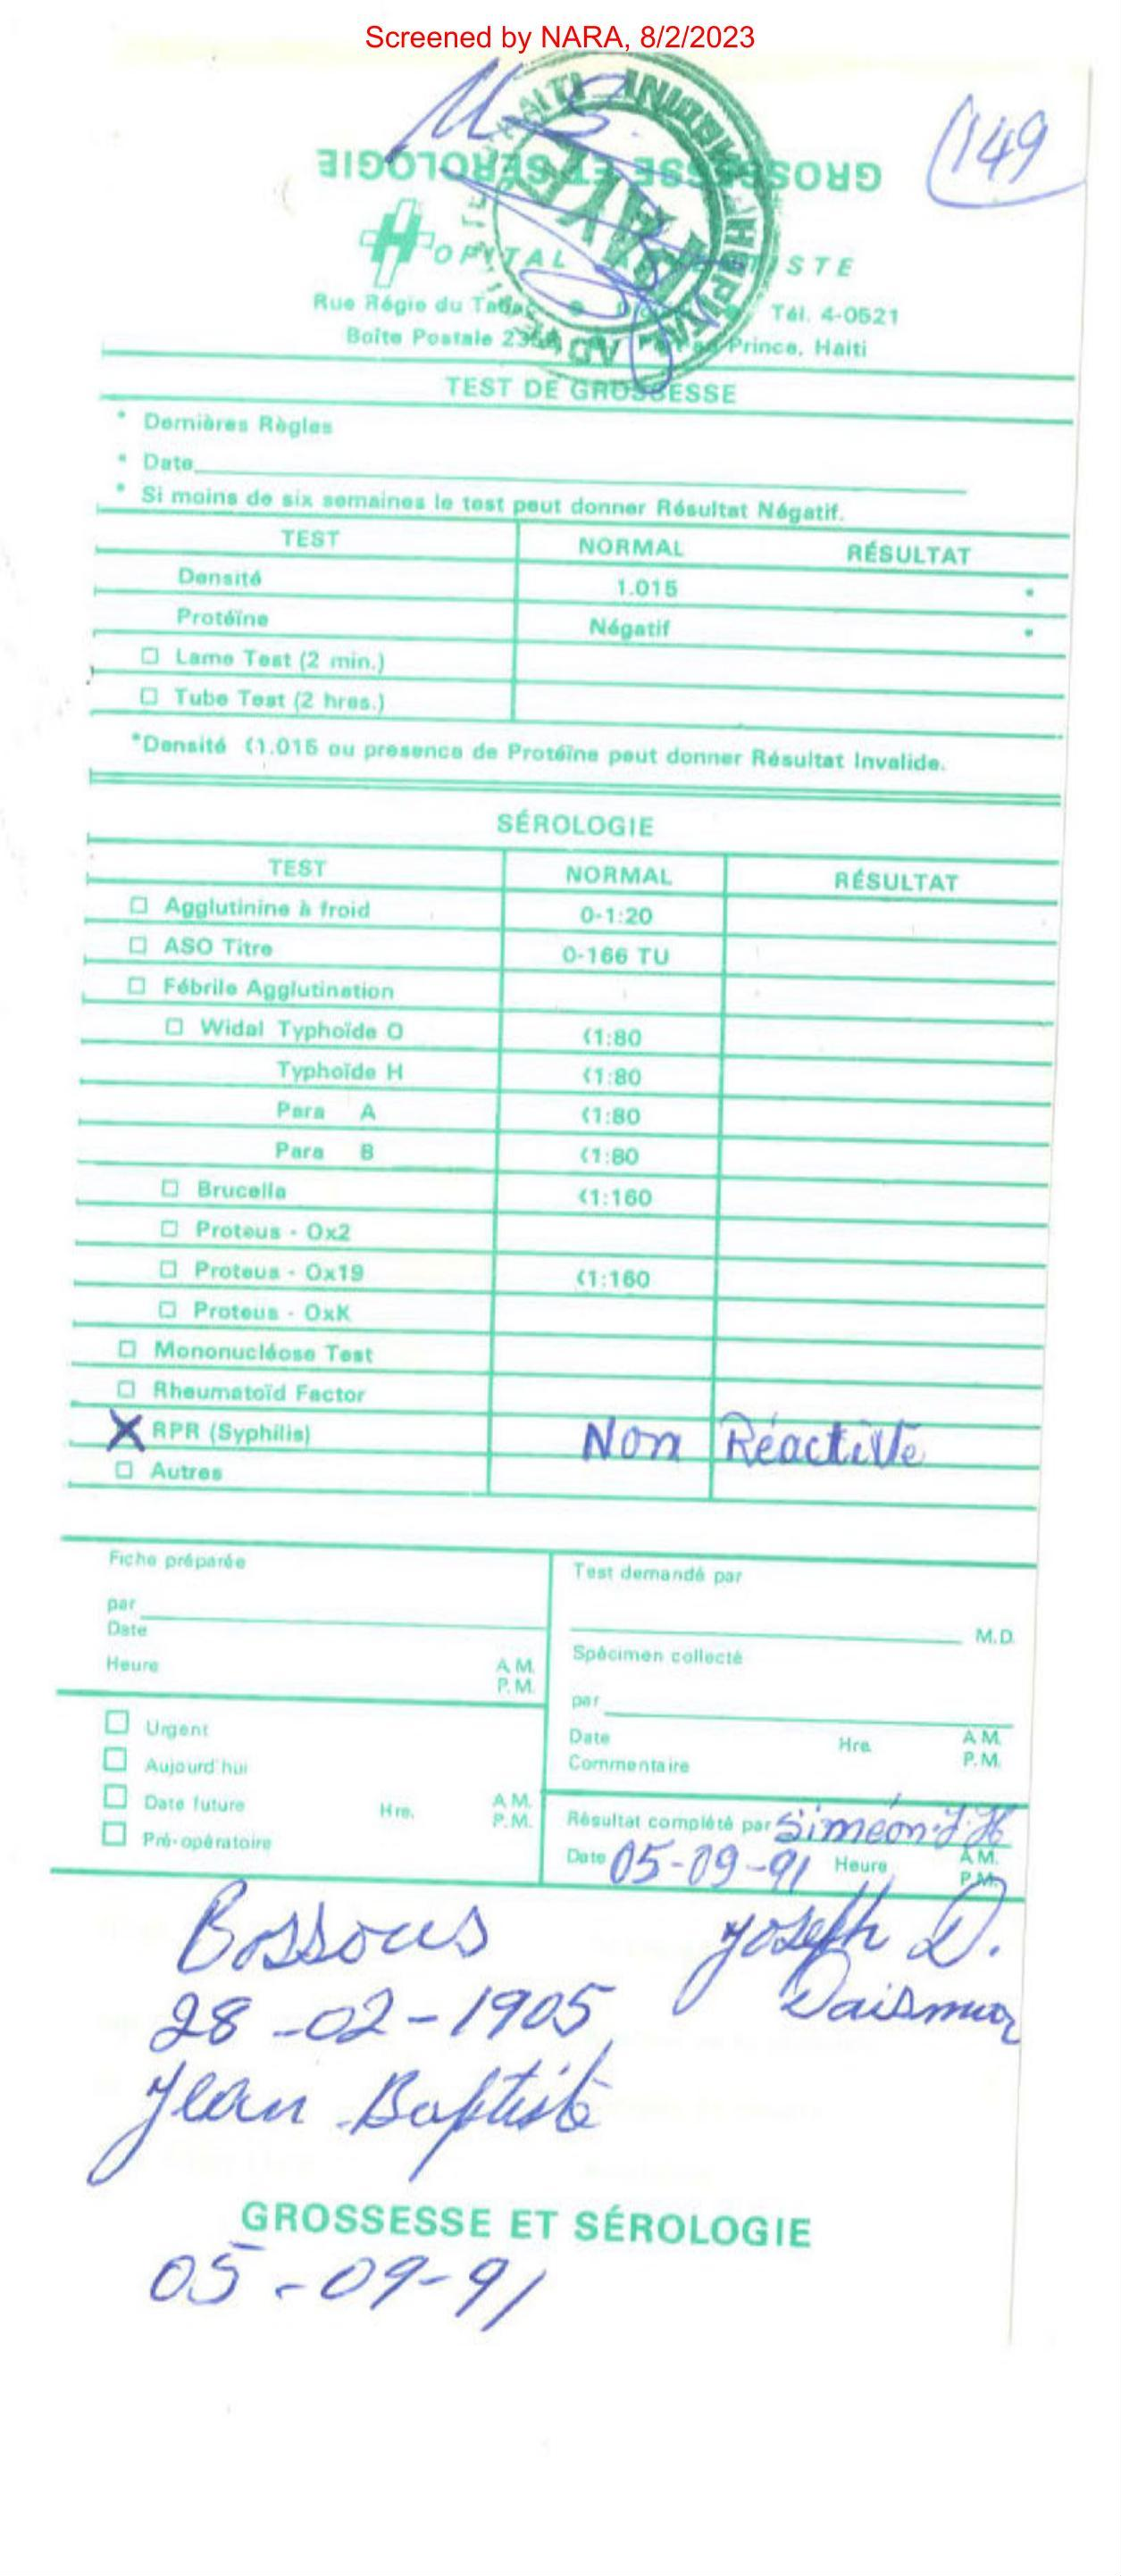 Screened by NARA, 8/2/2023
149
GROSSESSE ET SÉROLOGIE
HOPITAL STE
Rue Régie du Tabac Tél. 4-0521
Boîte Postale Prince, Haiti
PAYE
TEST DE GROSSESSE
* Dernières Règles
* Date
* Si moins de six semaines le test peut donner Résultat Négatif.
TEST NORMAL RÉSULTAT
Densité 1.015 *
Protéïne Négatif *
Lame Test (2 min.)
Tube Test (2 hres.)
*Densité <1.015 ou presence de Protéïne peut donner Résultat Invalide.
SÉROLOGIE
TEST NORMAL RÉSULTAT
Agglutinine à froid 0-1:20
ASO Titre 0-166 TU
Fébrile Agglutination
Widal Typhoïde O <1:80
Typhoïde H <1:80
Para A <1:80
Para B <1:80
Brucella <1:160
Proteus - Ox2
Proteus - Ox19 <1:160
Proteus - OxK
Mononucléose Test
Rheumatoïd Factor
X RPR (Syphilis) Non Réactive
Autres
Fiche préparée
par
Date
Heure A.M.
P.M.
Test demandé par
M.D.
Spécimen collecté
par
Date Hre. A.M.
Commentaire P.M.
Urgent
Aujourd'hui
Date future Hre. A.M.
P.M.
Pré-opératoire
Résultat complété par Siméon J.H
Date 05-09-91 Heure A.M.
P.M.
Bossous Joseph D.
28-02-1905
Jean Baptiste
GROSSESSE ET SÉROLOGIE
05-09-91